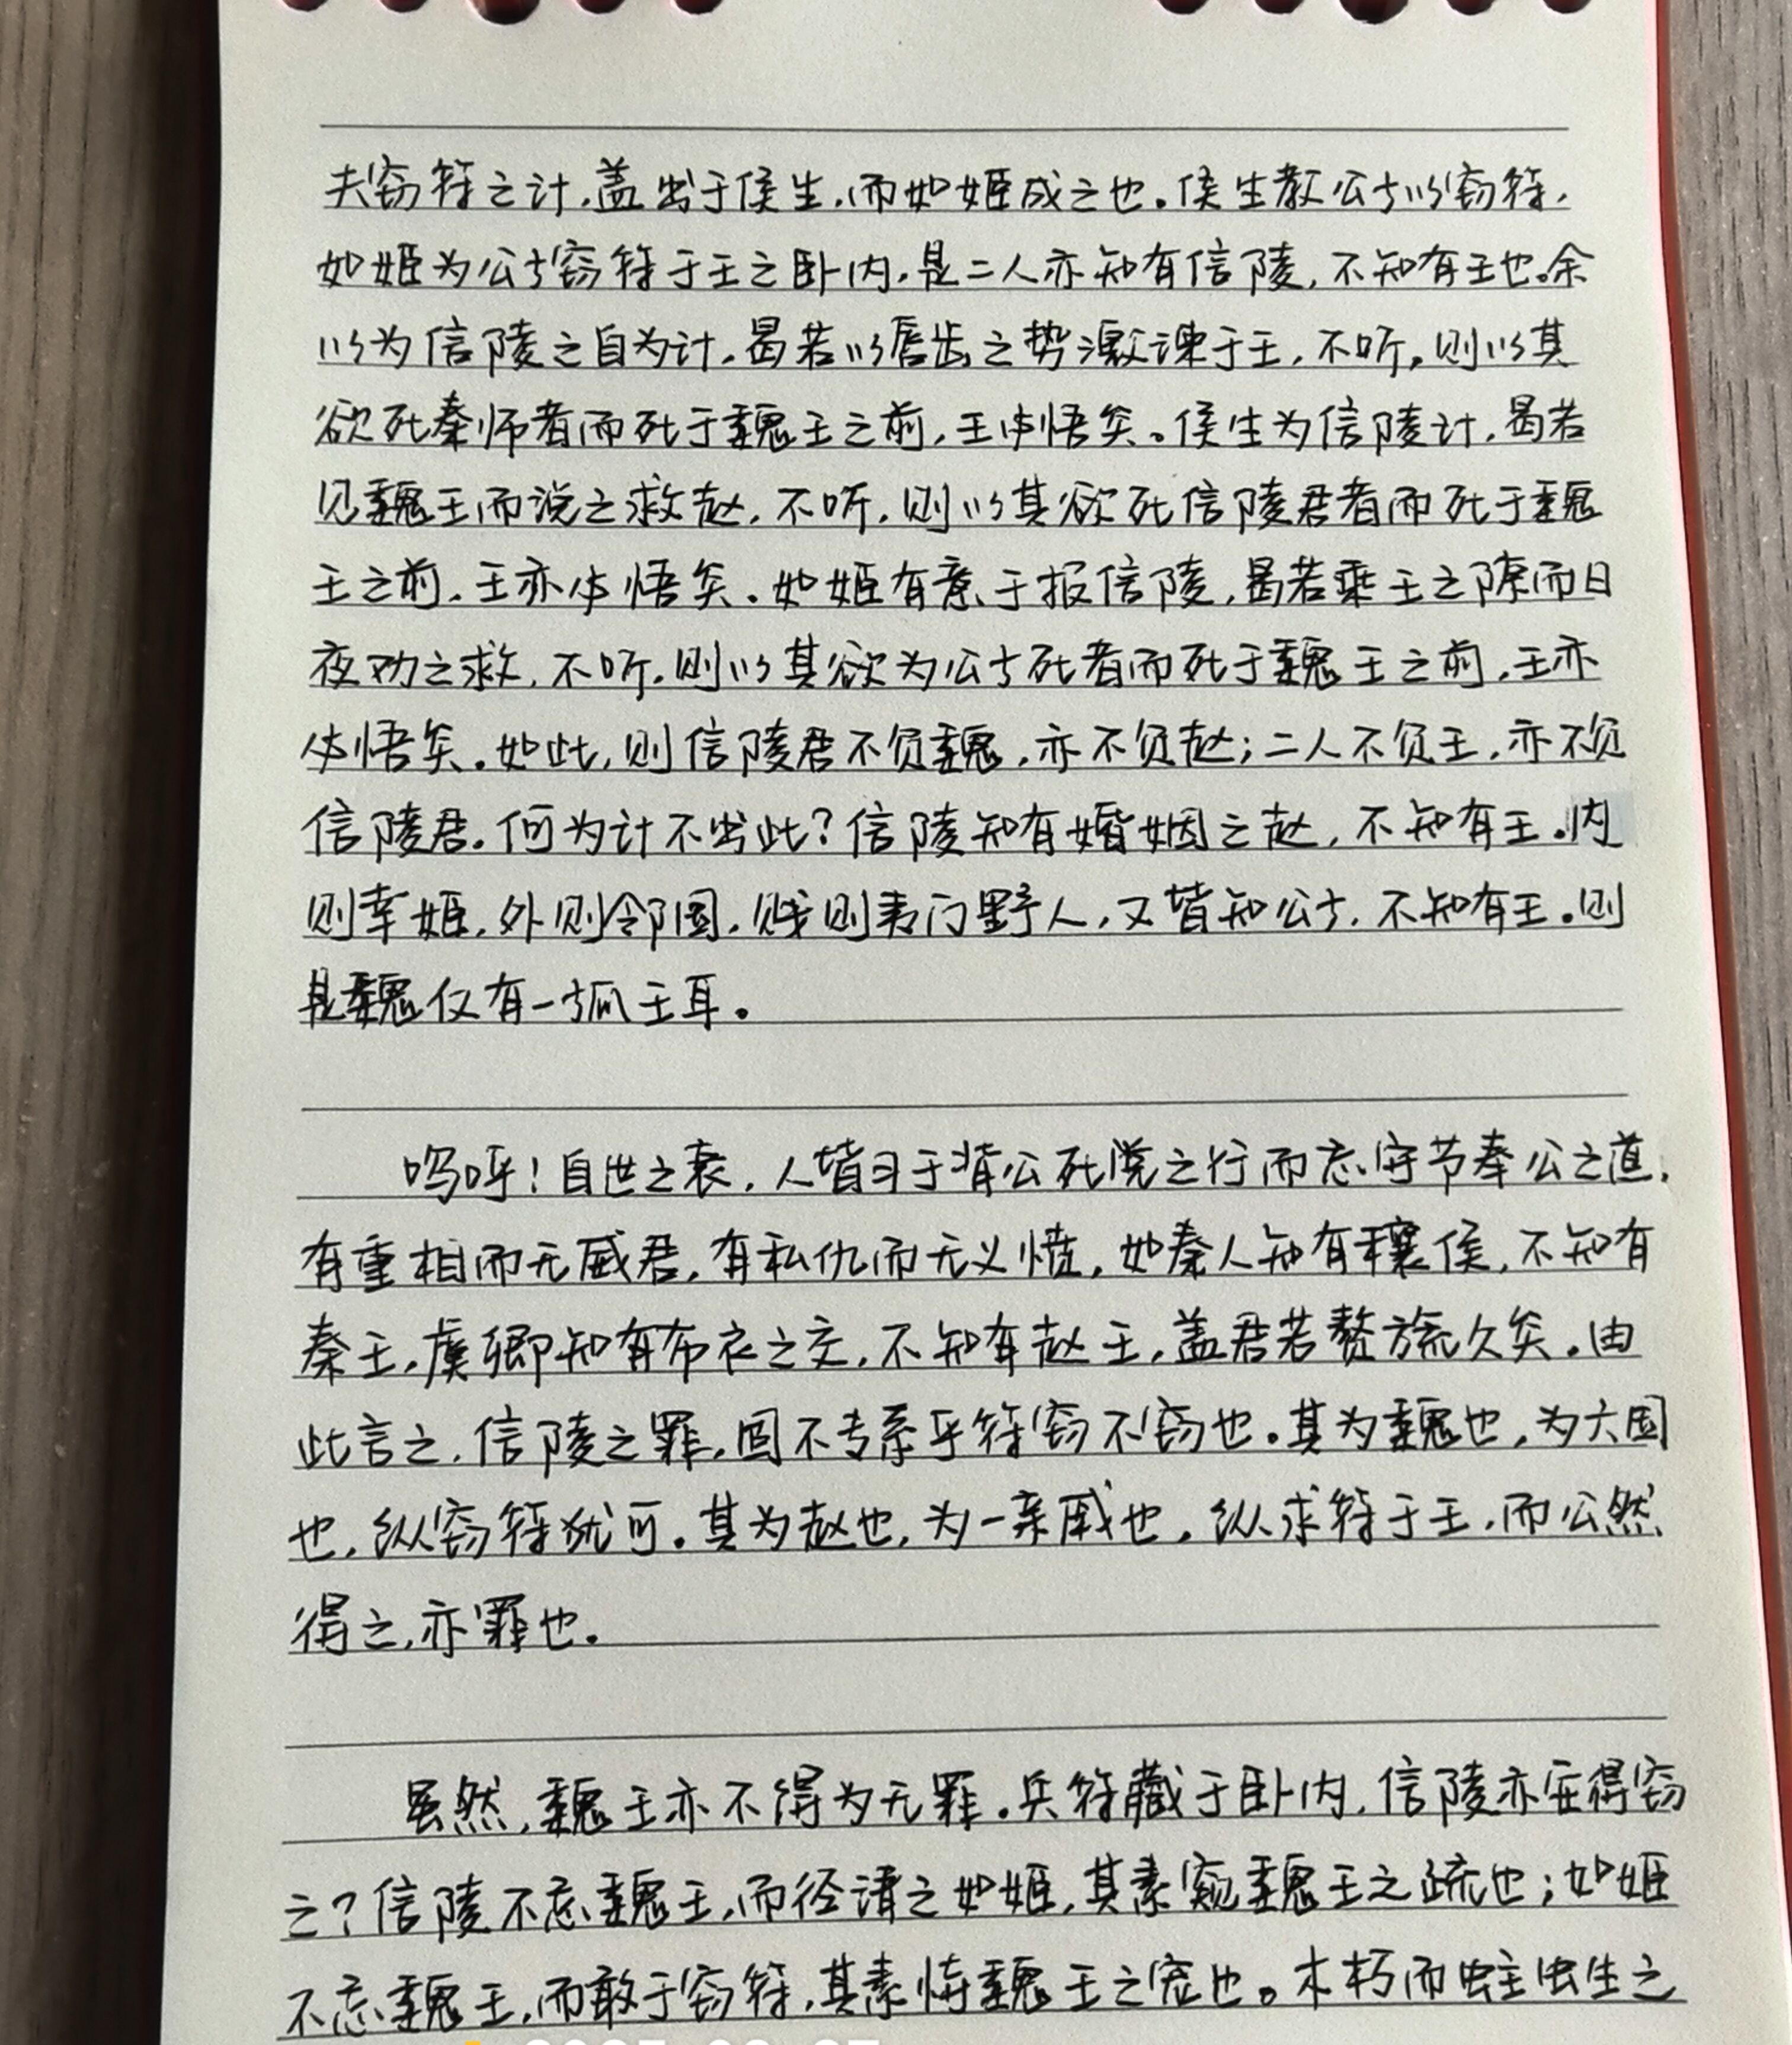 夫窃符之计,盖出于侯生,而如姬成之也。侯生教公子以窃符,
如姬为公子窃符于王之卧内,是二人亦知有信陵,不知有王也。余
以为信陵之自为计,曷若以唇齿之势激谏于王,不听,则以其
欲死秦师者而死于魏王之前,王必悟矣。侯生为信陵计,曷若
见魏王而说之救赵,不听,则以其欲死信陵君者而死于魏
王之前,王亦必悟矣。如姬有意于报信陵,曷若乘王之隙而日
夜劝之救,不听,则以其欲为公子死者而死于魏王之前,王亦
必悟矣。如此,则信陵君不负魏,亦不负赵;二人不负王,亦不负
信陵君。何为计不出此?信陵知有婚姻之赵,不知有王。内
则幸姬,外则邻国,贱则夷门野人,又皆知公子,不知有王。则
是魏仅有一孤王耳。
呜呼!自世之衰,人皆习于背公死党之行而忘守节奉公之道,
有重相而无威君,有私仇而无义愤,如秦人知有穰侯,不知有
秦王,虞卿知有布衣之交,不知有赵王,盖君若赘旒久矣。由
此言之,信陵之罪,固不专系乎符窃不窃也。其为魏也,为六国
也,纵窃符犹可。其为赵也,为一亲戚也,纵求符于王,而公然
得之,亦罪也。
虽然,魏王亦不得为无罪。兵符藏于卧内,信陵亦安得窃
之?信陵不忌魏王,而径请之如姬,其素窥魏王之疏也;如姬
不忌魏王,而敢于窃符,其素恃魏王之宠也。木朽而蛀虫生之